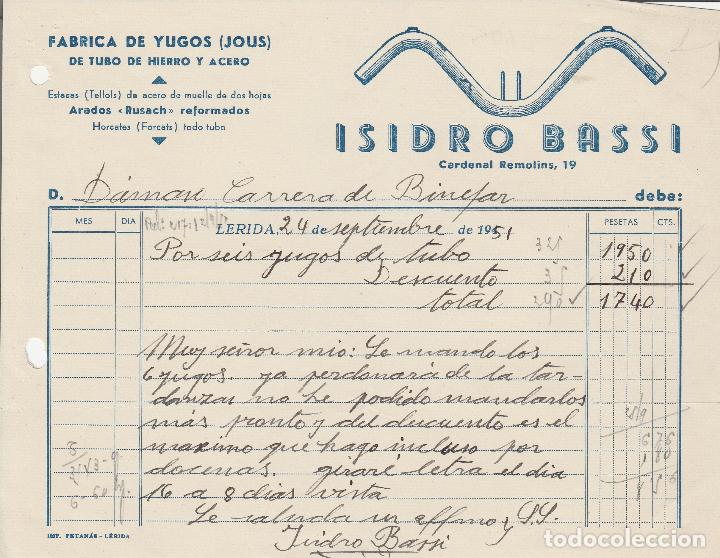 FABRICA DE YUGOS (JOUS)
DE TUBO DE HIERRO Y ACERO
Estacas (Tellols) de acero de muelle de dos hojas
Arados «Rusach» reformados
Horcates (Forcats) todo tubo
ISIDRO BASSI
Cardenal Remolins, 19
D. Dámaso Carrera de Binefar debe:
MES DIA LERIDA, 24 de septiembre de 1951 PESETAS CTS.
325
Por seis yugos de tubo 1950
Descuento 35 210
total 290 1740
Muy señor mio: Le mando los
6 yugos. ya perdonará de la tar-
danza no he podido mandarlos
más pronto y del descuento es el
maximo que hago incluso por
docenas. giraré letra el dia
16 a 8 dias vista
Le saluda un affmo y S.S.
Isidro Bassi
IMP. PETANÁS - LÉRIDA
todocoleccion